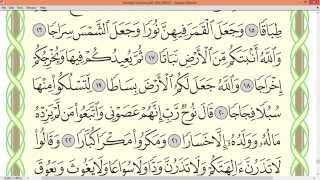 طِبَاقًا ١٥ وَجَعَلَ الْقَمَرَ فِيهِنَّ نُورًا وَجَعَلَ الشَّمْسَ سِرَاجًا ١٦
وَاللَّهُ أَنْبَتَكُمْ مِنَ الْأَرْضِ نَبَاتًا ١٧ ثُمَّ يُعِيدُكُمْ فِيهَا وَيُخْرِجُكُمْ
إِخْرَاجًا ١٨ وَاللَّهُ جَعَلَ لَكُمُ الْأَرْضَ بِسَاطًا ١٩ لِتَسْلُكُوا مِنْهَا
سُبُلًا فِجَاجًا ٢٠ قَالَ نُوحٌ رَبِّ إِنَّهُمْ عَصَوْنِي وَاتَّبَعُوا مَنْ لَمْ يَزِدْهُ
مَالُهُ وَوَلَدُهُ إِلَّا خَسَارًا ٢١ وَمَكَرُوا مَكْرًا كُبَّارًا ٢٢ وَقَالُوا
لَا تَذَرُنَّ آلِهَتَكُمْ وَلَا تَذَرُنَّ وَدًّا وَلَا سُوَاعًا وَلَا يَغُوثَ وَيَعُوقَ